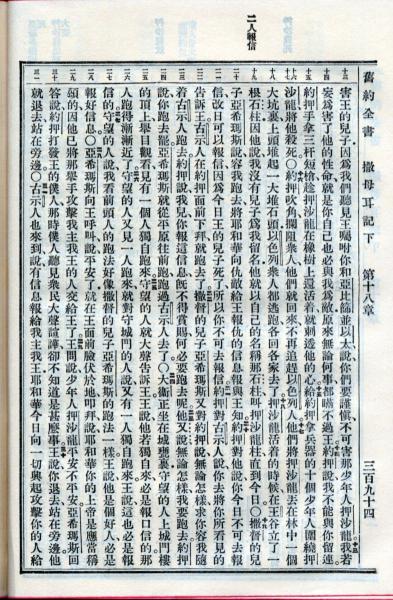 舊約全書 撒母耳記下 第十八章 三百九十四
二人報信
害王的兒子因爲我們聽見王囑咐你和亞比篩並以太說你們要謹愼不可害那少年人押沙龍我若
妄爲害了他的性命就是你自己也必與我爲敵原來無論何事都瞞不過王約押說我不能與你留連
約押手拿三杆短槍趁押沙龍在橡樹上還活着就刺透他的心給約押拿兵器的十個少年人圍繞押
沙龍將他殺死〇約押吹角攔阻衆人他們就回來不再追趕以色列人他們將押沙龍丟在林中一個
大坑裏上頭堆起一大堆石頭以色列衆人都逃跑各回各家去了押沙龍活着的時候在王谷立了一
根石柱因他說我沒有兒子爲我留名他就以自己的名稱那石柱叫押沙龍柱直到今日〇撒督的兒
子亞希瑪斯說容我跑去將耶和華向仇敵給王報仇的信息報與王知約押對他說你今日不可去報
信改日可以報信因爲今日王的兒子死了所以你不可去報信約押對古示人說你去將你所看見的
告訴王古示人在約押面前下拜就跑去了撒督的兒子亞希瑪斯又對約押說無論怎樣求你容我隨
着古示人跑去約押說我兒你報這信息既不得賞賜何必要跑去呢他又說無論怎樣我要跑去約押
說你跑去罷亞希瑪斯就從平原往前跑跑過古示人去了〇大衛正坐在城甕裏守望的人上城門樓
的頂上舉目觀看見有一個人獨自跑來守望的人就大聲告訴王王說他若獨自來必是報口信的那
人跑得漸漸近了守望的人又見一人跑來就對守城門的人說又有一人獨自跑來王說這也必是報
信的守望的人說我看前頭人的跑法好像撒督的兒子亞希瑪斯的跑法一樣王說他是個好人必是
報好信息〇亞希瑪斯向王呼叫說平安了就在王面前臉伏於地叩拜說耶和華你的上帝是應當稱
頌的因他已將那舉手攻擊我主我王的人交給王了王問說少年人押沙龍平安不平安亞希瑪斯回
答說約押打發王的僕人那時僕人聽見衆民大聲諠譁卻不知道是甚麼事王說你退去站在旁邊他
就退去站在旁邊〇古示人也來到說有信息報給我主我王耶和華今日向一切興起攻擊你的人給